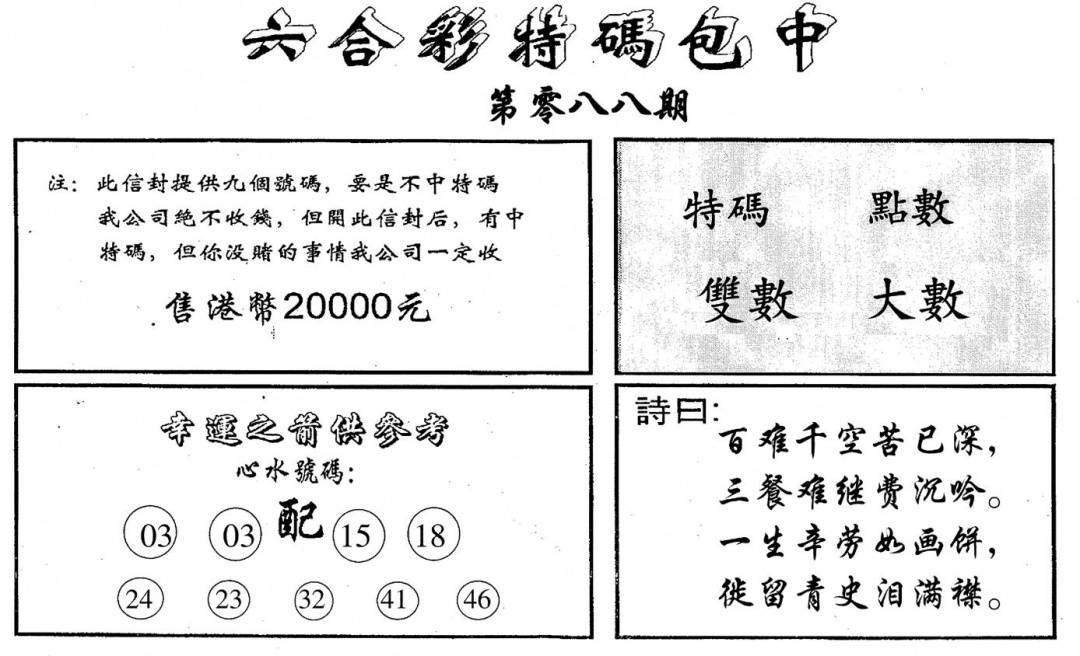 六合彩特碼包中
第零八八期
注：此信封提供九個號碼，要是不中特碼
我公司絕不收錢，但開此信封后，有中
特碼，但你没賭的事情我公司一定收
售港幣20000元
特碼 點數
雙數 大數
幸運之箭供參考
心水號碼：
03 03 配 15 18
24 23 32 41 46
詩曰：
百难千空苦已深，
三餐难继费沉吟。
一生辛劳如画饼，
徙留青史泪满襟。